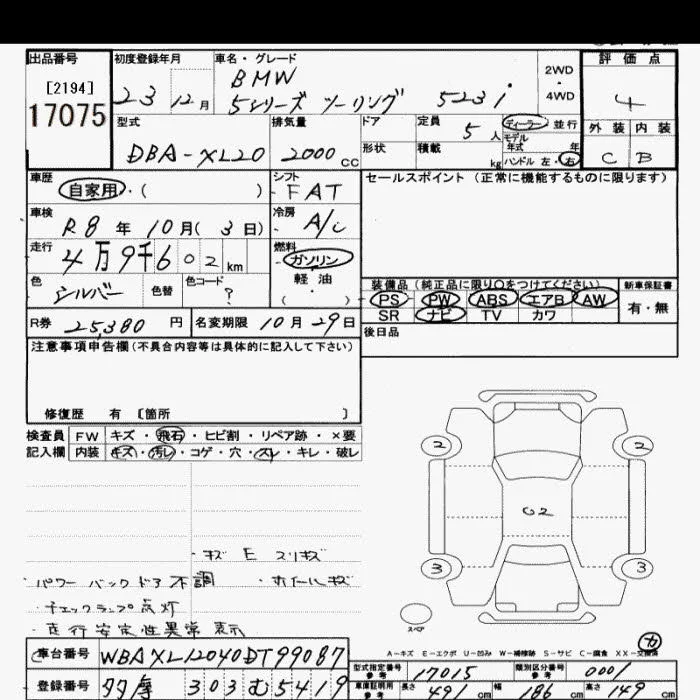 出品番号 初度登録年月 車名・グレード 評価点
[2194]
17075
23 12月
BMW
5シリーズ ツーリング 523i
2WD
・
4WD
4
型式 排気量 ドア 定員 5人 ディーラー 並行 外装 内装
DBA-XL20 2000cc
形状 積載 kg
モデル年式 年
ハンドル 左・右
C B
車歴 自家用・( )
シフト FAT
セールスポイント(正常に機能するものに限ります)
車検 R8年10月(3日)
冷房 A/C
走行 4万9千602km
燃料 ガソリン
軽油
( ・ )
色 シルバー 色替 色コード ?
装備品(純正品に限り○をつけてください) 新車保証書
PS PW ABS エアB AW 有・無
SR ナビ TV カワ
R券 25,380円 名変期限 10月29日
後日品
注意事項申告欄(不具合内容等は具体的に記入して下さい)
修復歴 有 〔箇所 〕
検査員 FW キズ・飛石・ヒビ割・リペア跡・×要
記入欄 内装 キズ・汚レ・コゲ・穴・スレ・キレ・破レ
・キズ E スリキズ
・パワーバックドア不調 ・ホイールキズ
・チェックランプ点灯
・走行安定性異常 表示
2 2
G2
3 3
スペア
A-キズ E-エクボ U-凹み W-補修跡 S-サビ C-腐食 XX-交換済
カ
車台番号 WBAXL12040DT99087
型式指定番号 参考 17015 類別区分番号 参考 0001
登録番号 多摩 303 む 5419
車庫証明用 参考 長さ 491cm 幅 186cm 高さ 149cm